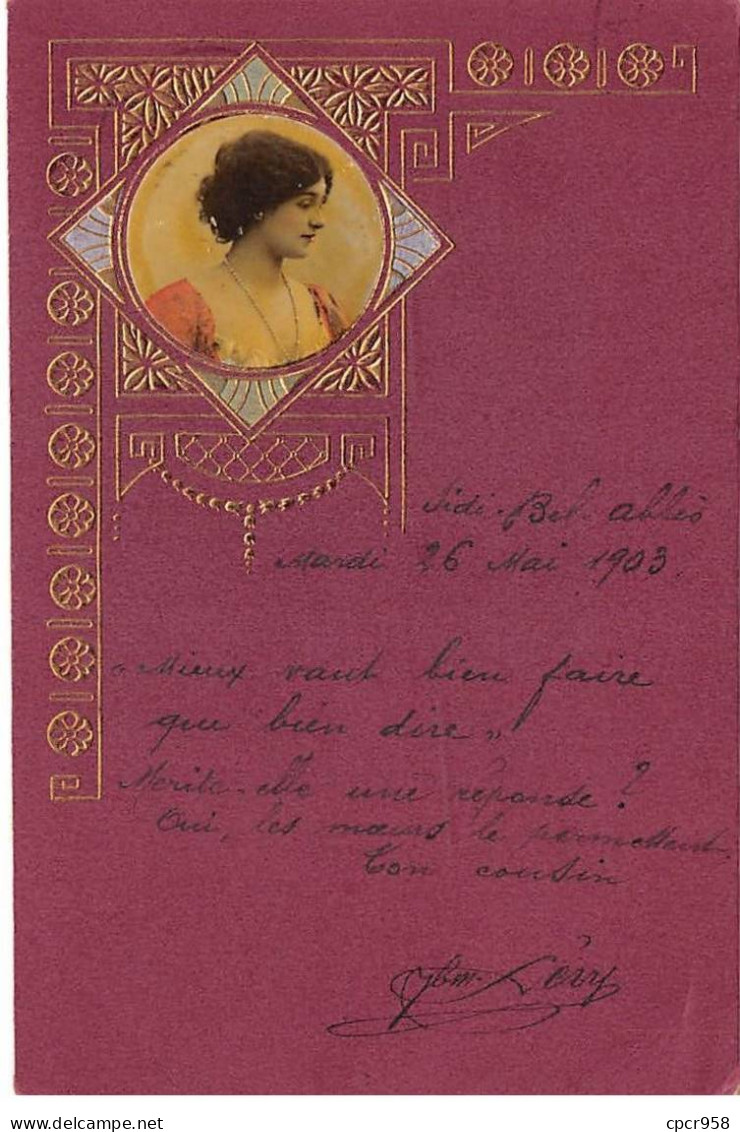 Sidi-Bel abbès
Mardi 26 Mai 1903.
"Mieux vaut bien faire
que bien dire"
Mérite-elle une réponse?
Oui, les mœurs le permettent.
Ton cousin
Lévy
delcampe.net
cpcr958